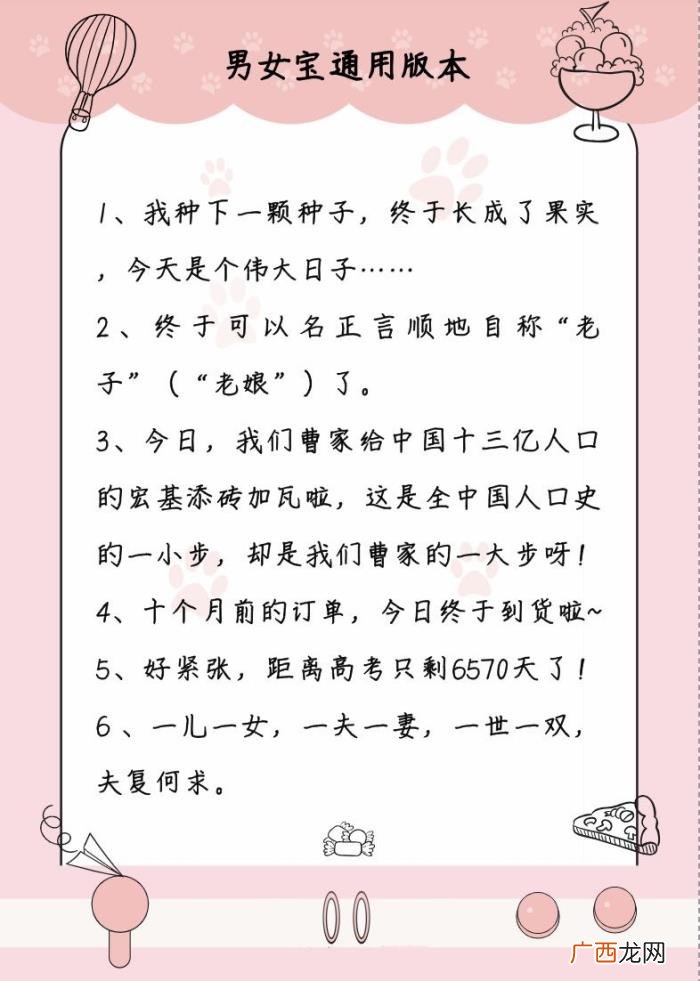 男女宝通用版本
1、我种下一颗种子，终于长成了果实
，今天是个伟大日子……
2、终于可以名正言顺地自称“老
子”（“老娘”）了。
3、今日，我们曹家给中国十三亿人口
的宏基添砖加瓦啦，这是全中国人口史
的一小步，却是我们曹家的一大步呀！
4、十个月前的订单，今日终于到货啦~
5、好紧张，距离高考只剩6570天了！
6、一儿一女，一夫一妻，一世一双，
夫复何求。
广西龙网